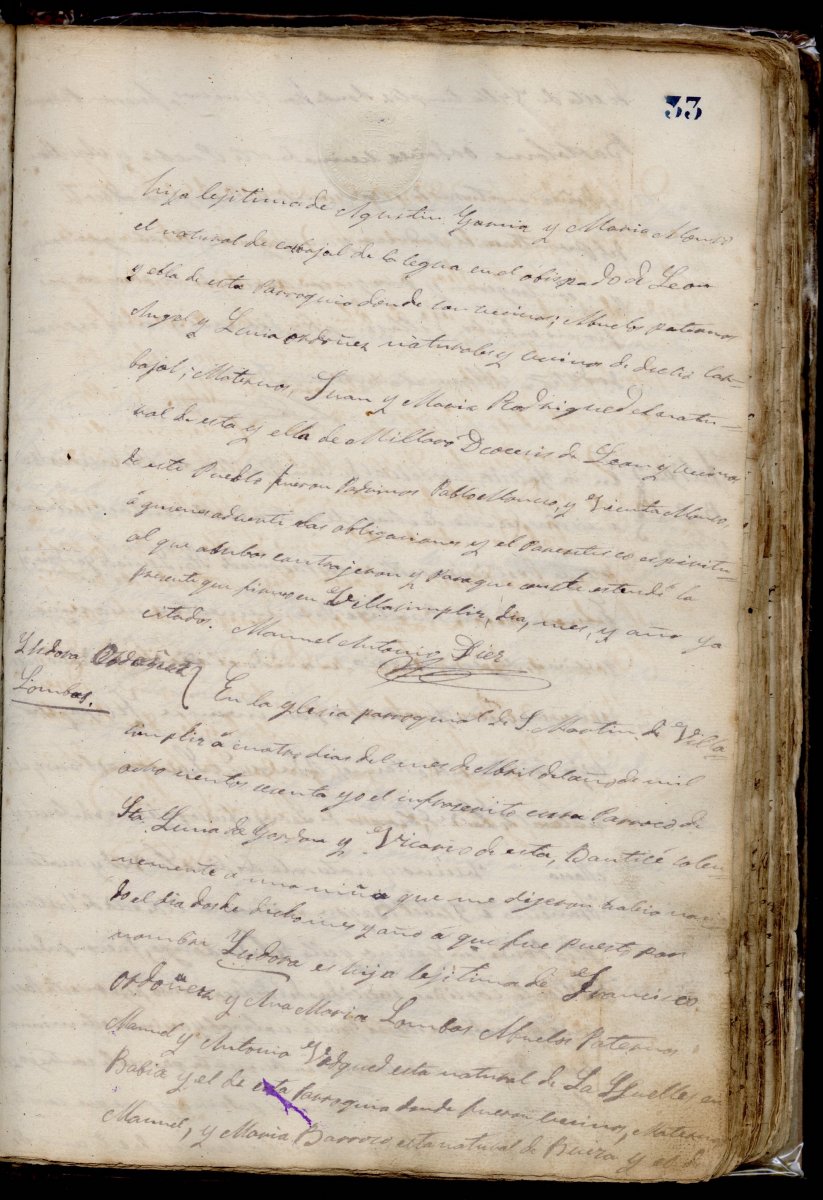 33
hija lejitima de Agustin Garcia y Maria Alonso
el natural de carbajal de la legua en el obispado de Leon
y ella de esta Parroquia donde son vecinos; Abuelos paternos
Angel y Luisa ordoñez naturales y vecinos de dicho Car-
bajal; Maternos, Juan y Maria Rodriguez el natu-
ral de esta y ella de Millaró Diocesis de Leon y vecinos
de este Pueblo fueron Padrinos Pablo y Vicenta Alonso,
á quienes adverti las obligaciones y el Parentesco espiritu-
al que ambos contrajeron y para que conste estendí la
presente que firmo en Villasimpliz, dia, mes, y año ya
citados. Manuel Antonio Diez
Ysidora Ordoñez
Lombas.
En la yglesia parroquial de S. Martin de Villa-
simpliz á cuatro dias del mes de Abril del año de mil
ocho cientos yo el infrascrito cura Parroco de
Sta. Lucia de Gordon y Vicario de esta, Bauticé solem-
nemente a una niña que me digeron habia naci-
do el dia dos de dicho mes y año á que fue puesto por
nombre Ysidora es hija lejitima de Francisco
ordoñez y Ana Maria Lombas Abuelos Paternos
Manuel y Antonia esta natural de La en
Babia y el de esta Parroquia donde fueron vecinos, Maternos
Manuel, y Maria Barroso esta natural de Buiza y el de